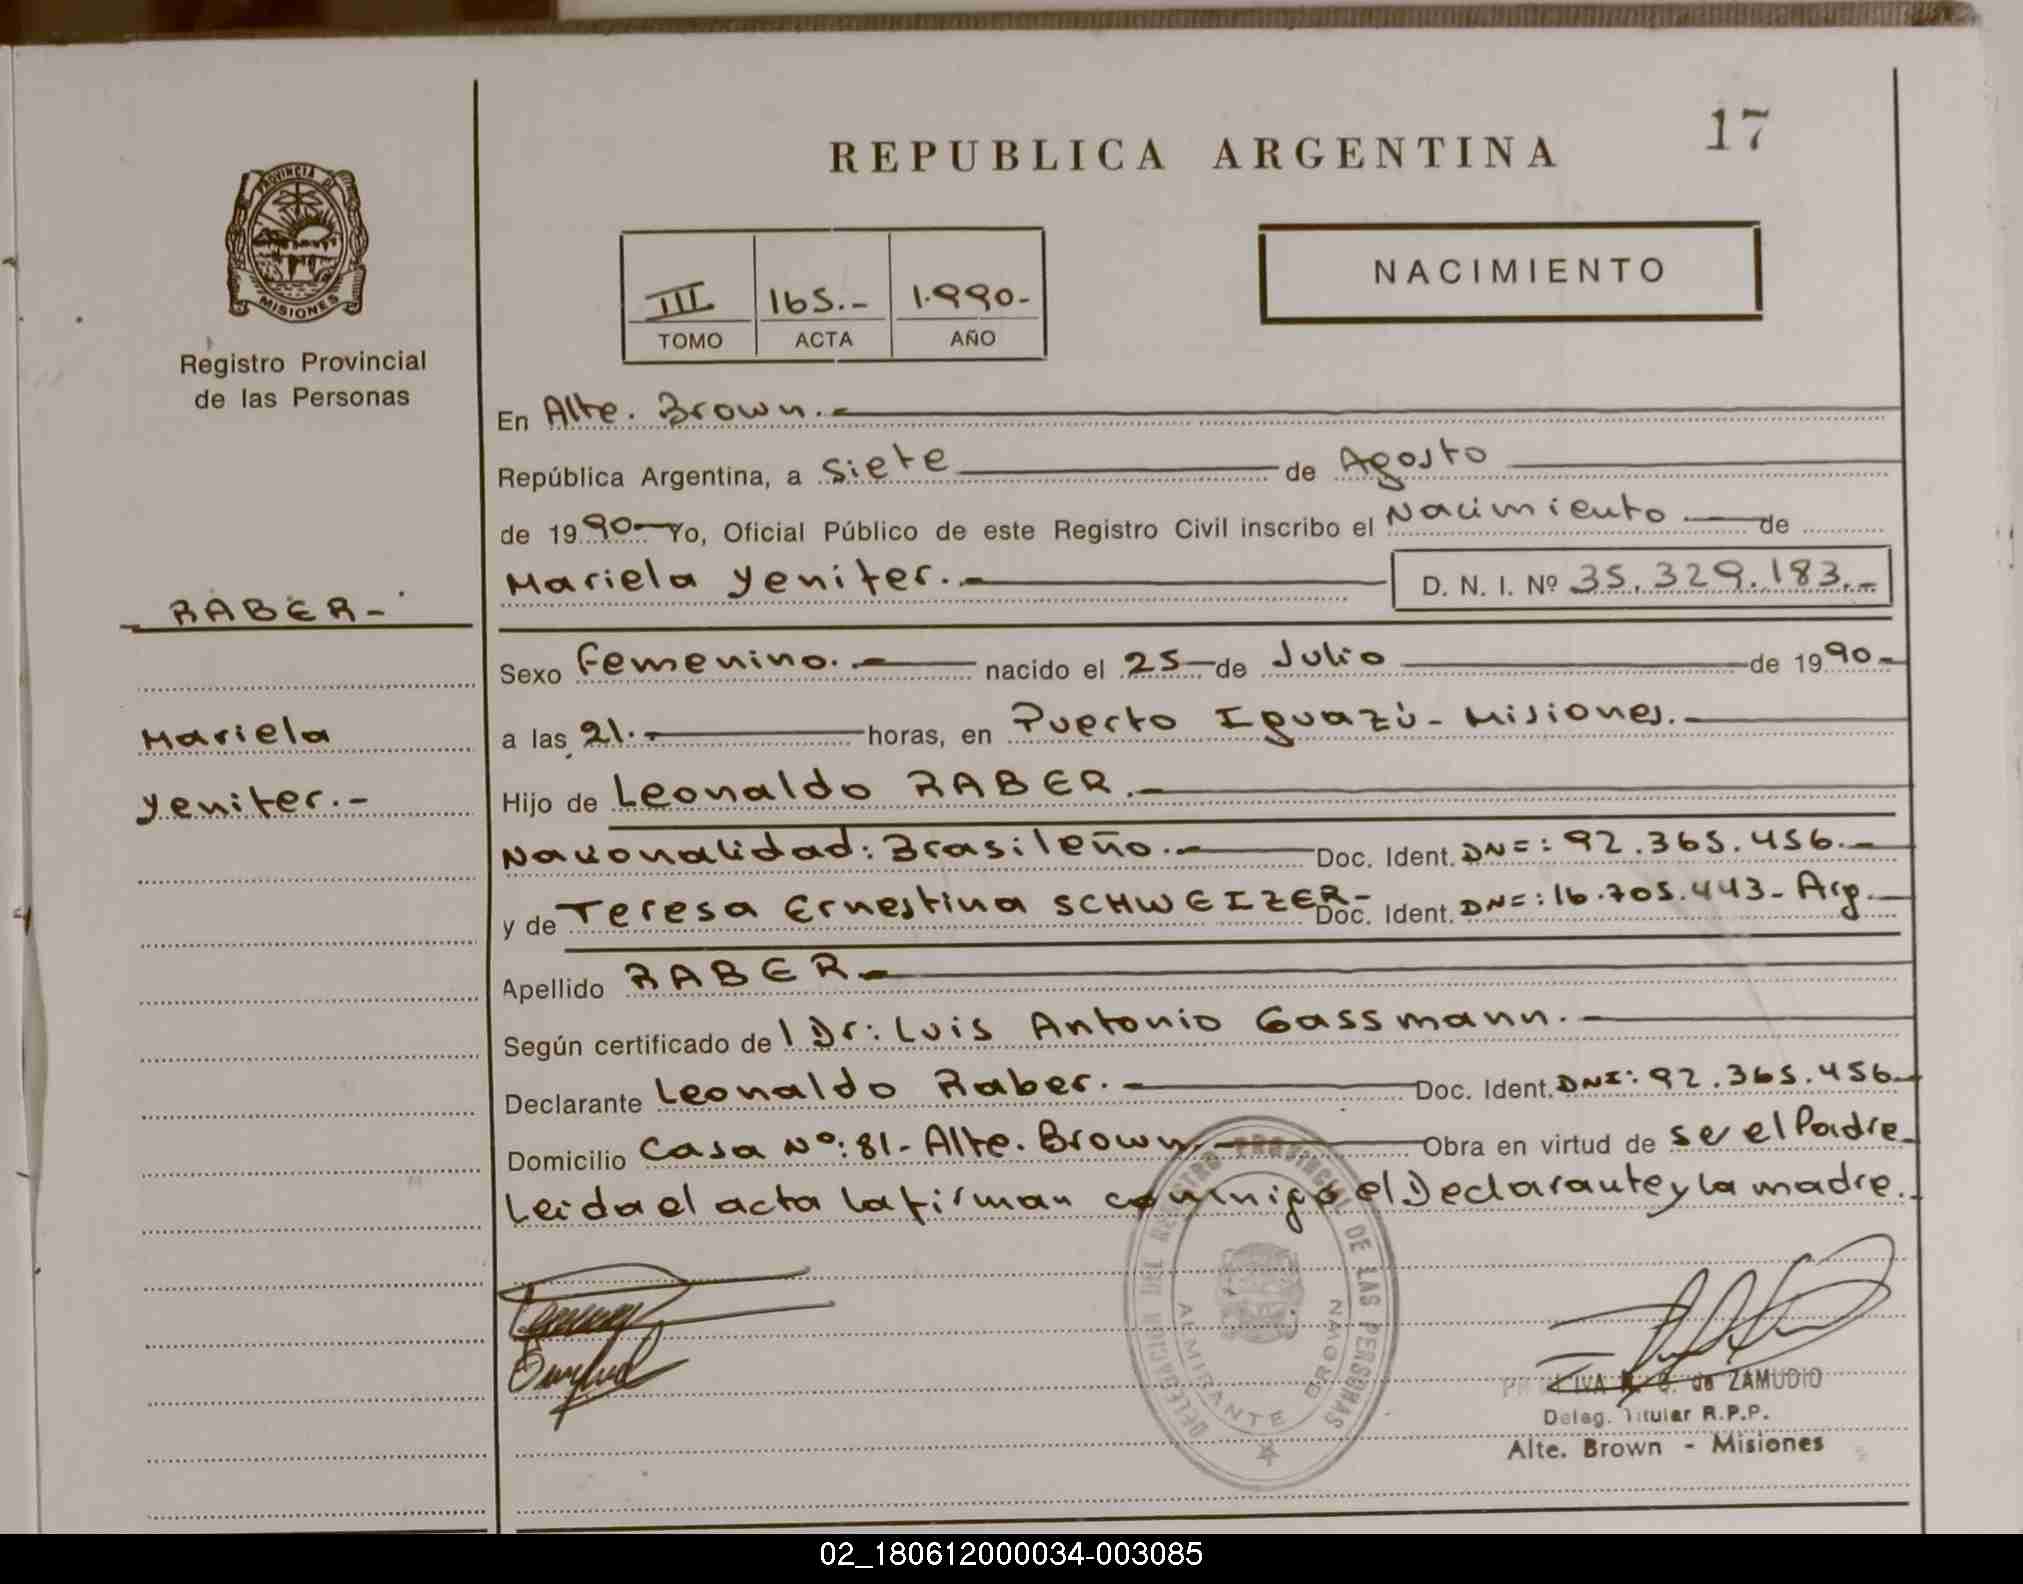 17
REPUBLICA ARGENTINA
PROVINCIA DE
MISIONES
Registro Provincial
de las Personas
NACIMIENTO
III 165.- 1.990-
TOMO ACTA AÑO
En Alte. Brown.-
República Argentina, a siete de Agosto
de 1990- Yo, Oficial Público de este Registro Civil inscribo el Nacimiento de
Mariela Yenifer.- D. N. I. Nº 35.329.183.-
RABER-
Sexo Femenino.- nacido el 25 de Julio de 1990-
Mariela
a las 21.- horas, en Puerto Iguazú - Misiones.-
Yenifer.-
Hijo de Leonaldo RABER.-
Nacionalidad: Brasileño.- Doc. Ident. DNI: 92.365.456.-
y de Teresa Ernestina SCHWEIZER- Doc. Ident. DNI: 16.705.443- Arg.-
Apellido RABER-
Según certificado del Dr: Luis Antonio Gassmann.-
Declarante Leonaldo Raber.- Doc. Ident. DNI: 92.365.456-
Domicilio Casa Nº: 81- Alte. Brown.- Obra en virtud de se el Padre-
Leida el acta la firman conmigo el Declarante y la madre.-
DELEGACION DEL REGISTRO PROVINCIAL DE LAS PERSONAS
ALMIRANTE BROWN
de ZAMUDIO
Deleg. Titular R.P.P.
Alte. Brown - Misiones
02_180612000034-003085